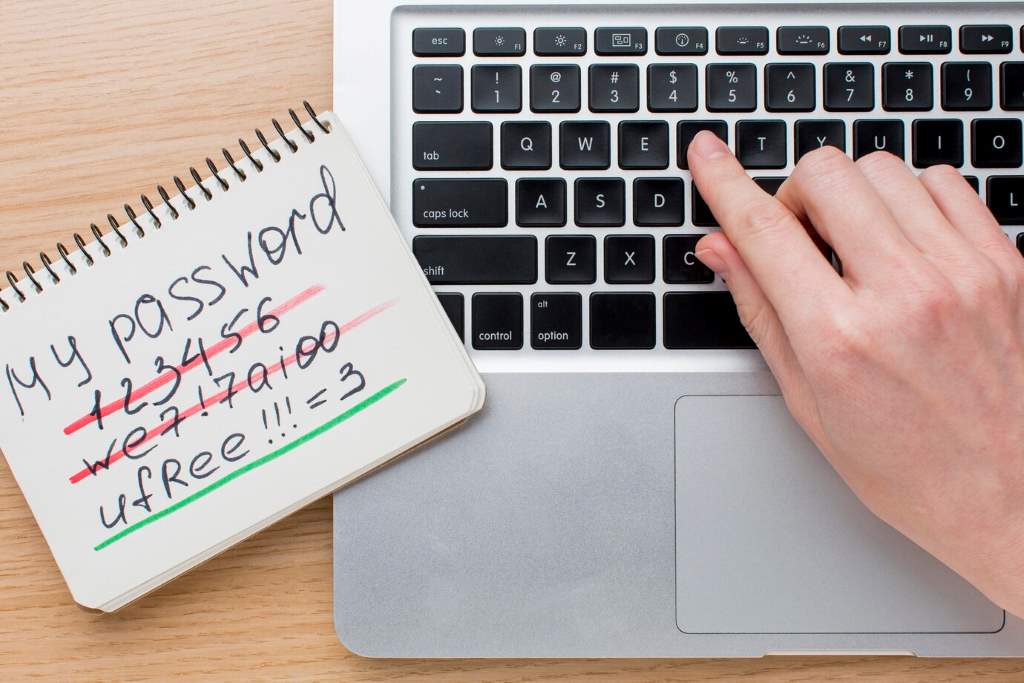 My password
123456
we7!7aio0
ufRee!!!=3
esc F1 F2 F3 F4 F5 F6 F7 F8 F9
~ ` ! 1 @ 2 # 3 $ 4 % 5 ^ 6 & 7 * 8 ( 9
tab Q W E T Y U I O
caps lock A S D L
shift Z X C
control alt option